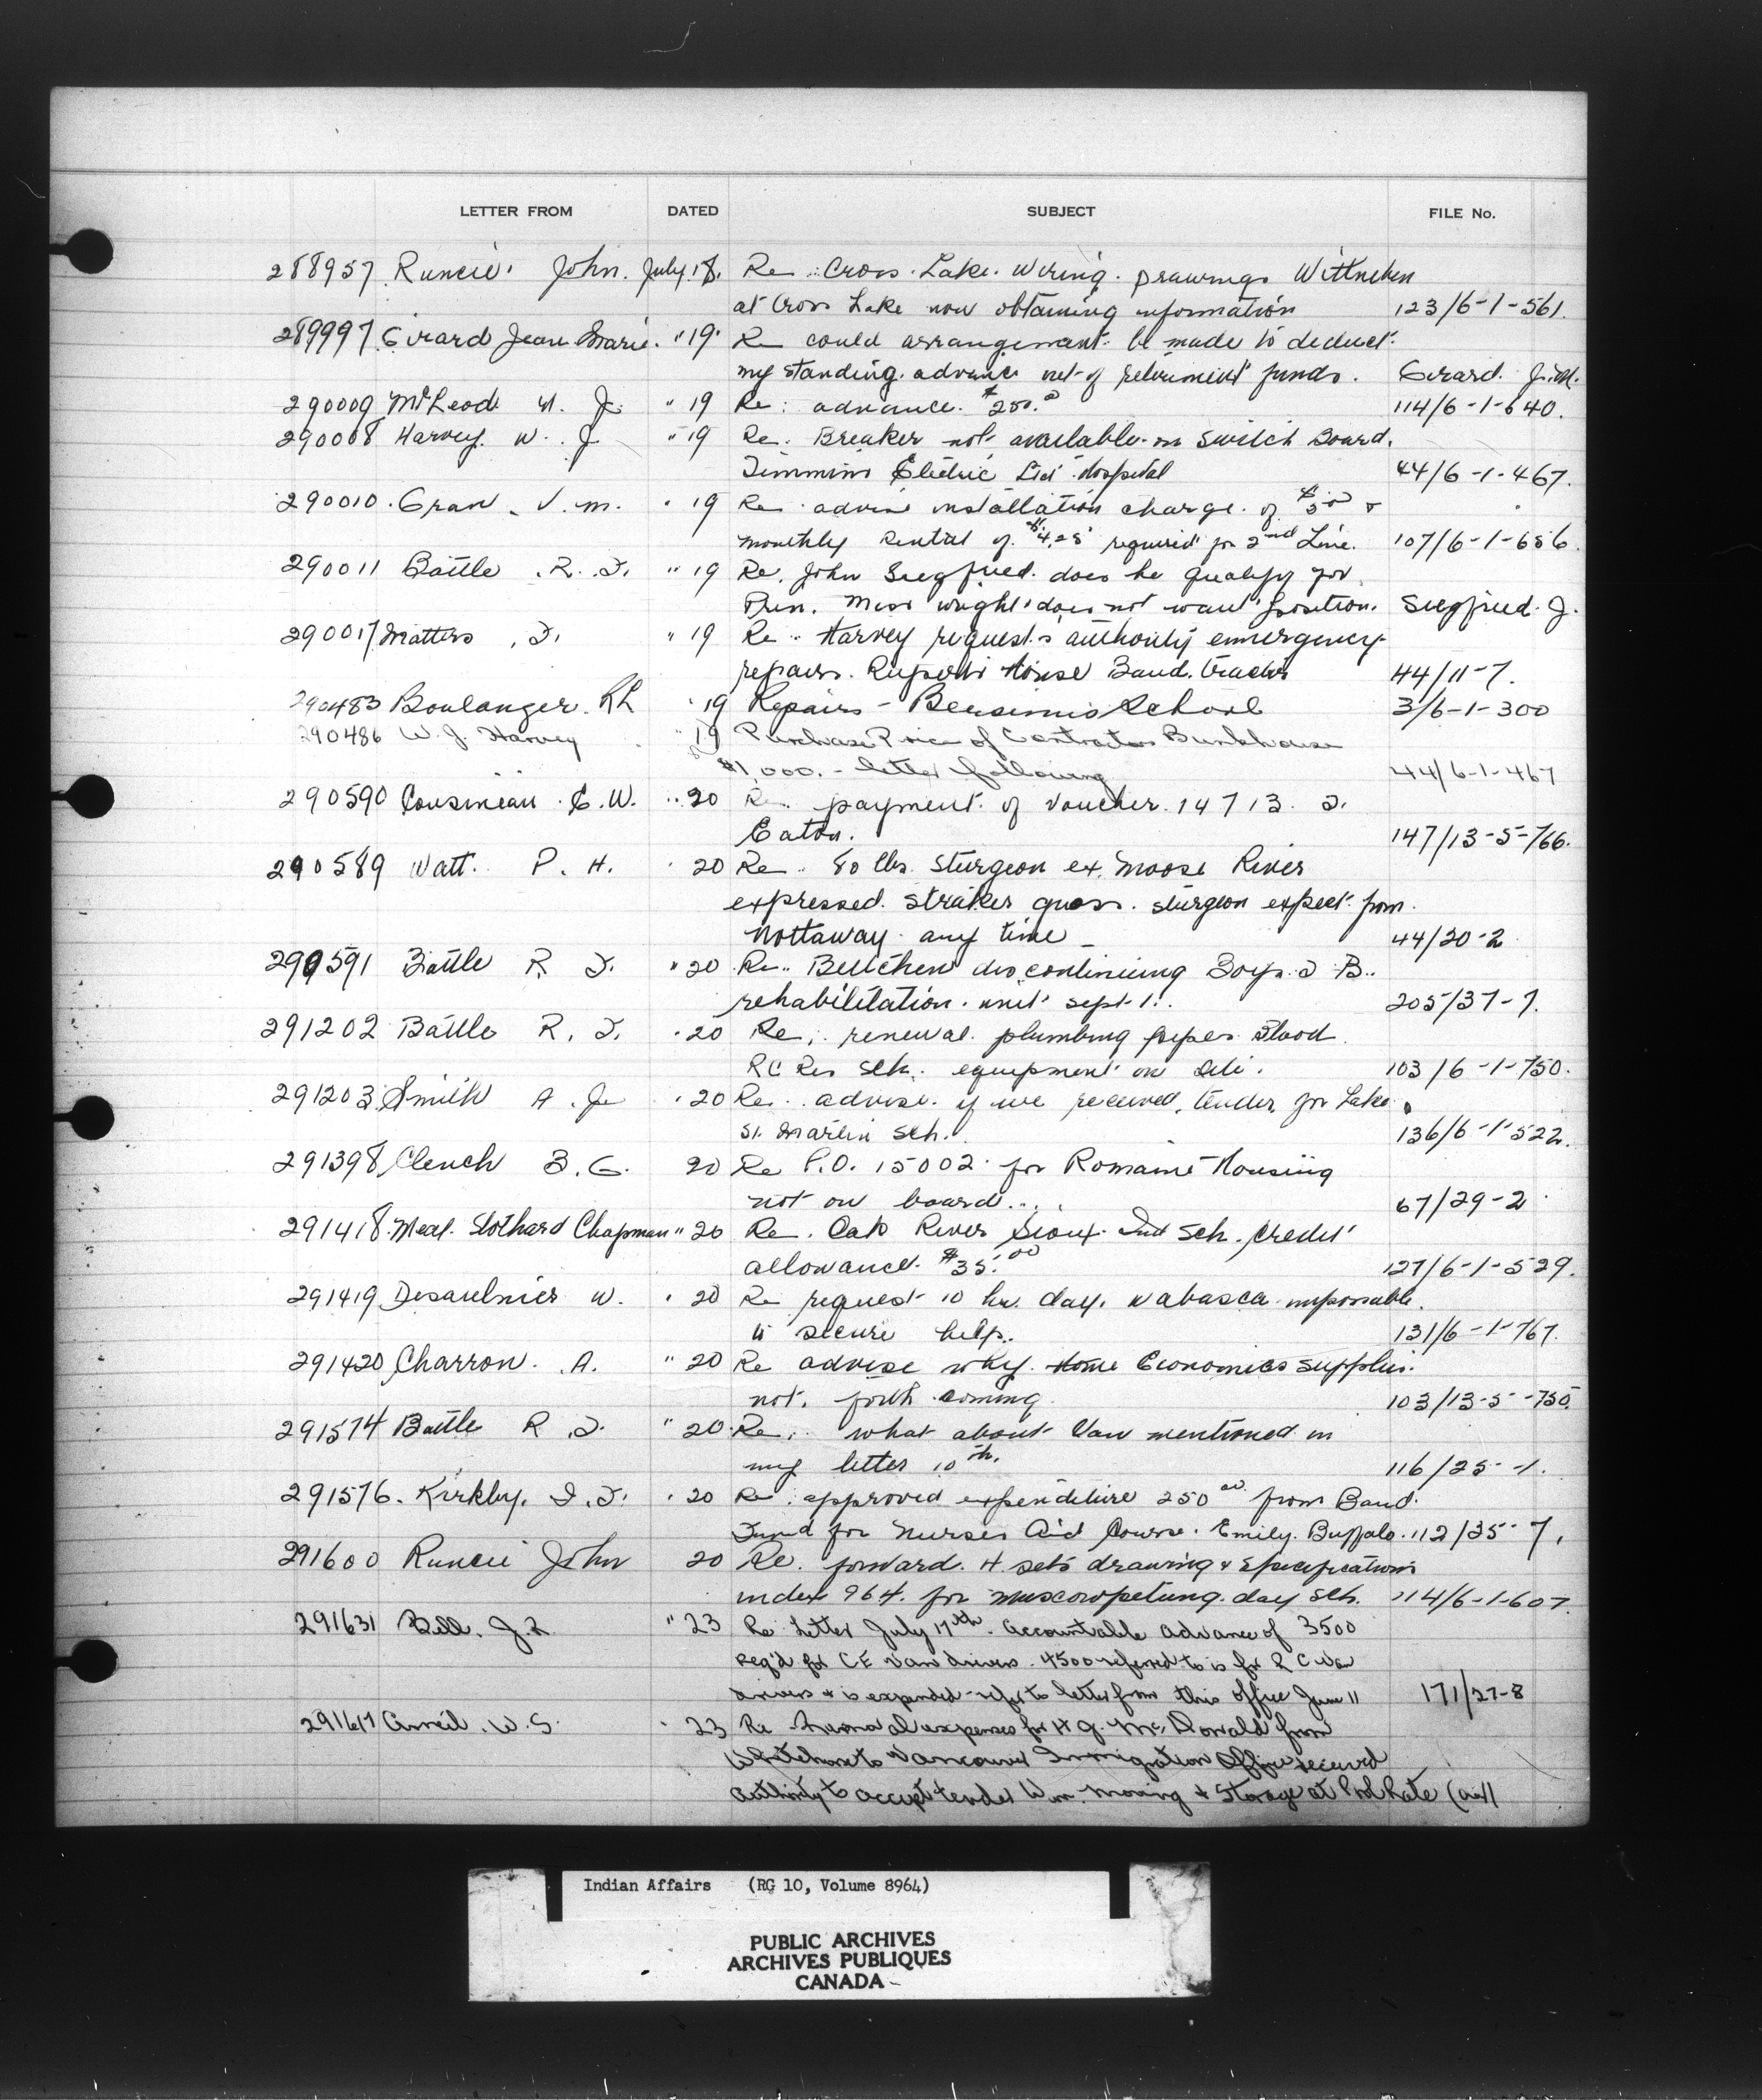 LETTER FROM DATED SUBJECT FILE No.
288957 Runcie John. July 18. Re Cross Lake Wiring drawings Wittnehen
at Cross Lake now obtaining information 123/6-1-561.
289997 Girard Jean Marie. " 19 Re could arrangement be made to deduct
my standing advance out of retirement funds. Gerard J.M.
290009 McLeod J. " 19 Re: advance $250.00 114/6-1-640.
290008 Harvey W. J " 19 Re. Breaker not available on Switch Board.
Timmins Electric Ltd Hospital 44/6-1-467.
290010 Gran V. M. " 19 Re advise installation charge of &
monthly Rental of $4.25 required for 2nd Line. 107/6-1-656.
290011 Battle R. J. " 19 Re. John Siegfried does he qualify for
Prin. Miss Wright does not want position. Siegfried J.
290017 Matters J. " 19 Re Harvey requests authority emmergency
repairs. Ruperts House Band tractor 44/11-7.
290483 Boulanger RL " 19 Repairs - Bersimis School 3/6-1-300
290486 W. J. Harvey " 19 Purchase Price of Contractors Bunkhouse
$1,000. - letter following 44/6-1-467
290590 Cousineau E. W. " 20 Re payment of voucher 14713 T.
Eaton. 147/13-5-766.
290589 Watt. P. H. " 20 Re 80 lbs Sturgeon ex Moose River
expressed Straker guess. sturgeon expect from
Nottaway any time - 44/20-2
290591 Battle R J. " 20 Re discontinuing Boys T B.
rehabilitation unit Sept 1. 205/37-7.
291202 Battle R. J. " 20 Re: renewal plumbing pipes Blood
RC Res Sch. equipment on site. 103/6-1-750.
291203 Smith A. J. " 20 Re. advise if we received tender for Lake
St. Martin Sch. 136/6-1-522.
291398 Clench B. G. 20 Re P.O. 15002 for Romaine Housing
not on board... 67/29-2
291418 Meal. Slothard Chapman " 20 Re. Oak River Sioux Ind Sch. credit
allowance $35.00 127/6-1-529.
291419 Desaulnier W. " 20 Re request 10 hr. day. Wabasca impossable
to secure help. 131/6-1-767.
291420 Charron. A. " 20 Re advise why Home Economics supplies
not forth coming 103/13-5-750.
291574 Battle R J. " 20 Re: what about Van mentioned in
my letter 10th. 116/25-1.
291576. Kirkby. J. " 20 Re: approved expenditure 250 00 from Band
Fund for Nurses Aid Course. Emily Buffalo. 112/35-7.
291600 Runcie John 20 Re. forward 4 sets drawing & specifications
index 964 for Muscowpetung day Sch. 114/6-1-607.
291631 Bell. J.L " 23 Re Letter July 17th. Accountable Advance of 3500
req'd for CE Van drivers. 4500 referred to is for R C Van
drivers & is expended - refer to letter from this office June 11 171/27-8
291617 Arneil. W.S. " 23 Re Removal expenses for H G. McDonald from
Whitehorse to Vancouver Immigration Office received
authority to accept tender Wm. Moving & Storage at Pool Rate
Indian Affairs (RG 10, Volume 8964)
PUBLIC ARCHIVES
ARCHIVES PUBLIQUES
CANADA